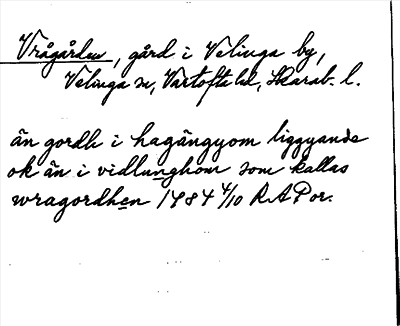 Vrågården, gård i Velinga by,
Velinga sn, Vartofta hd, Skarab. l.
än gordh i hagängyom liggyande
ok än i vidlunghom som kallas
wragordhen 1484 4/10 RAP or.